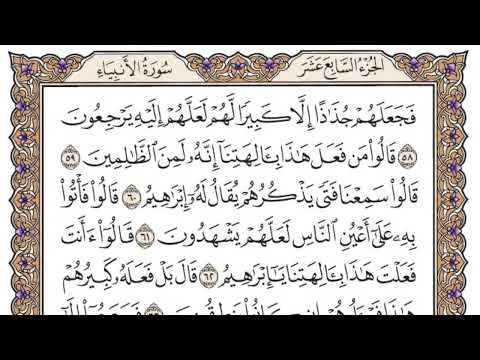 الجُزْءُ السَّابِعَ عَشَرَ سُورَةُ الأَنبِيَاءِ
فَجَعَلَهُمْ جُذَٰذًا إِلَّا كَبِيرًا لَّهُمْ لَعَلَّهُمْ إِلَيْهِ يَرْجِعُونَ
٥٨ قَالُوا۟ مَن فَعَلَ هَٰذَا بِـَٔالِهَتِنَآ إِنَّهُۥ لَمِنَ ٱلظَّٰلِمِينَ ٥٩
قَالُوا۟ سَمِعْنَا فَتًى يَذْكُرُهُمْ يُقَالُ لَهُۥٓ إِبْرَٰهِيمُ ٦٠ قَالُوا۟ فَأْتُوا۟
بِهِۦ عَلَىٰٓ أَعْيُنِ ٱلنَّاسِ لَعَلَّهُمْ يَشْهَدُونَ ٦١ قَالُوٓا۟ ءَأَنتَ
فَعَلْتَ هَٰذَا بِـَٔالِهَتِنَا يَٰٓإِبْرَٰهِيمُ ٦٢ قَالَ بَلْ فَعَلَهُۥ كَبِيرُهُمْ